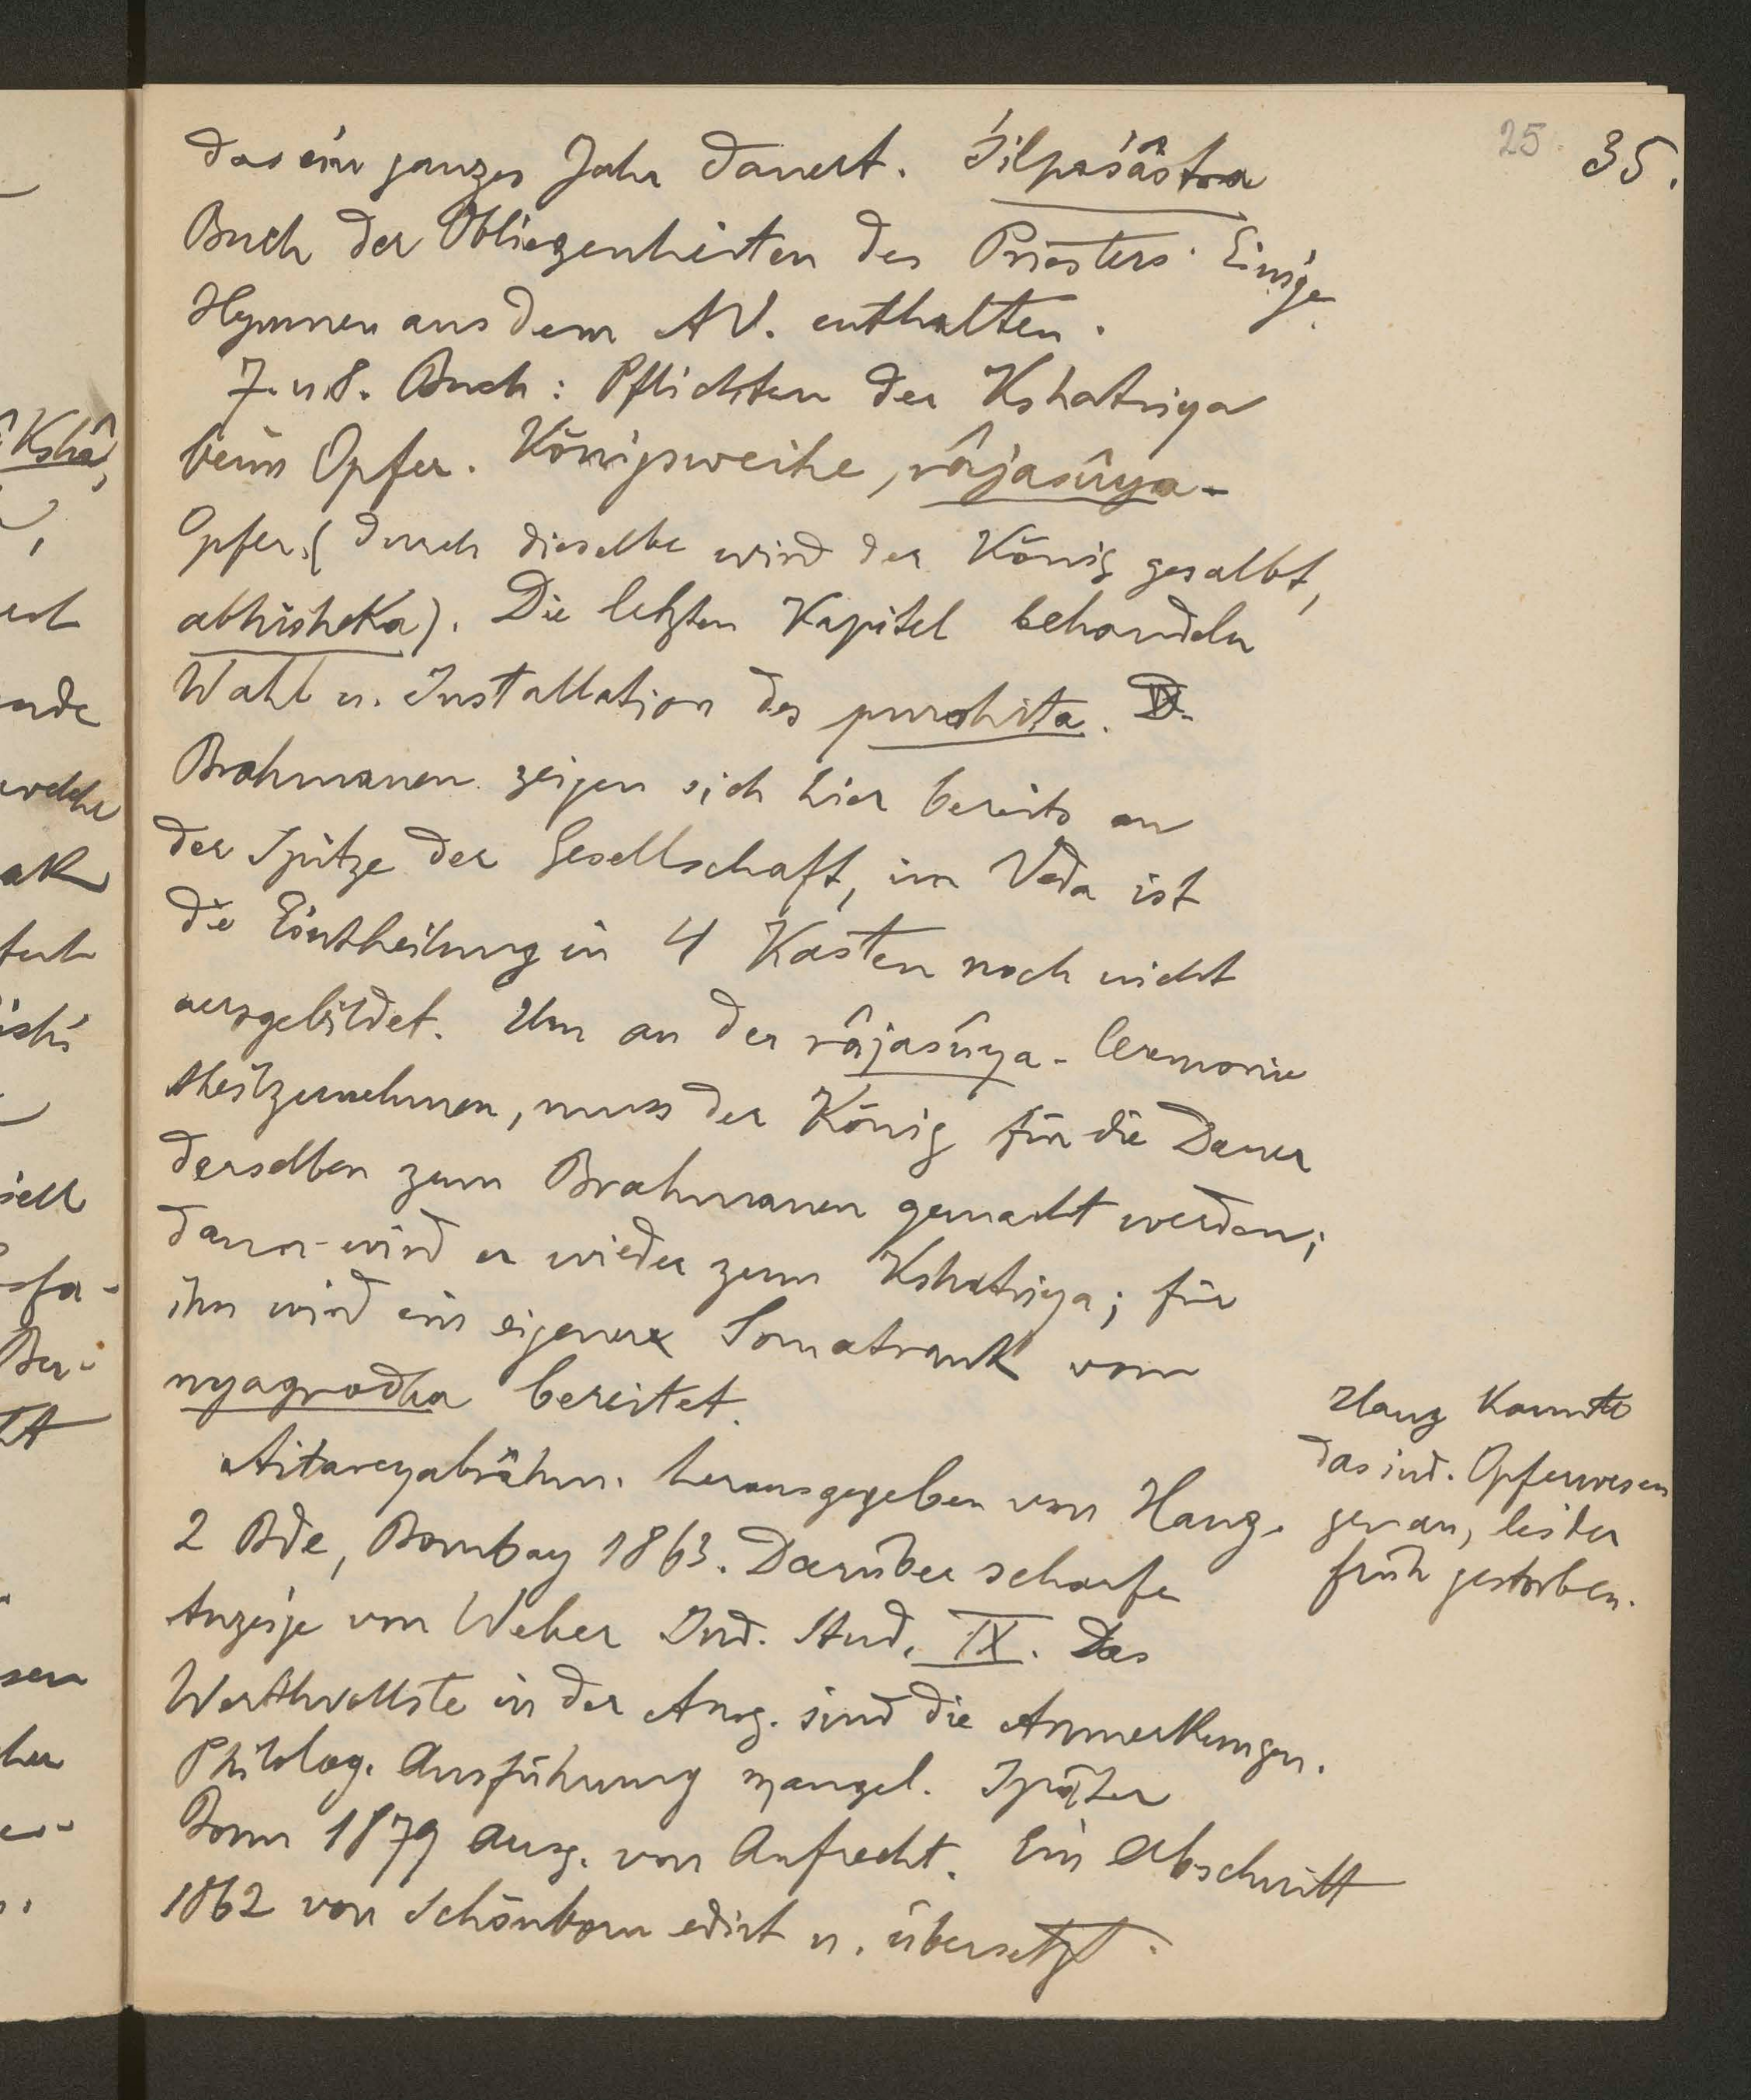 25. 35.
das ein ganzes Jahr dauert. Śilpaśâstra
Buch der Obliegenheiten des Priesters. Einige
Hymnen aus dem AV. enthalten.
7. u. 8. Buch: Pflichten der Kshatriya
beim Opfer. Königsweihe, râjasûya-
Opfer. (durch dieselbe wird der König gesalbt,
abhisheka). Die letzten Kapitel behandeln
Wahl u. Installation des purohita. D.
Brahmanen zeigen sich hier bereits an
der Spitze der Gesellschaft, im Veda ist
die Eintheilung in 4 Kasten noch nicht
ausgebildet. Um an der râjasûya-Ceremonie
theilzunehmen, muss der König für die Dauer
derselben zum Brahmanen gemacht werden;
dann wird er wieder zum Kshatriya; für
ihn wird ein eigener Somatrank vom
nyagrodha bereitet.
Aitareyabrâhm. herausgegeben von Haug.
2 Bde, Bombay 1863. Darüber scharfe
Anzeige von Weber Ind. Stud. IX. Das
Werthvollste in der Ausg. sind die Anmerkungen.
Philolog. Ausführung mangel. Später
Bonn 1879 Ausg. von Aufrecht. Ein Abschnitt
1862 von Schönborn edirt u. übersetzt.
Haug kannte
das ind. Opferwesen
genau, leider
früh gestorben.
Kshâ,
ende
welche
ak
ishi
iell
sfa-
Be-
sen
her